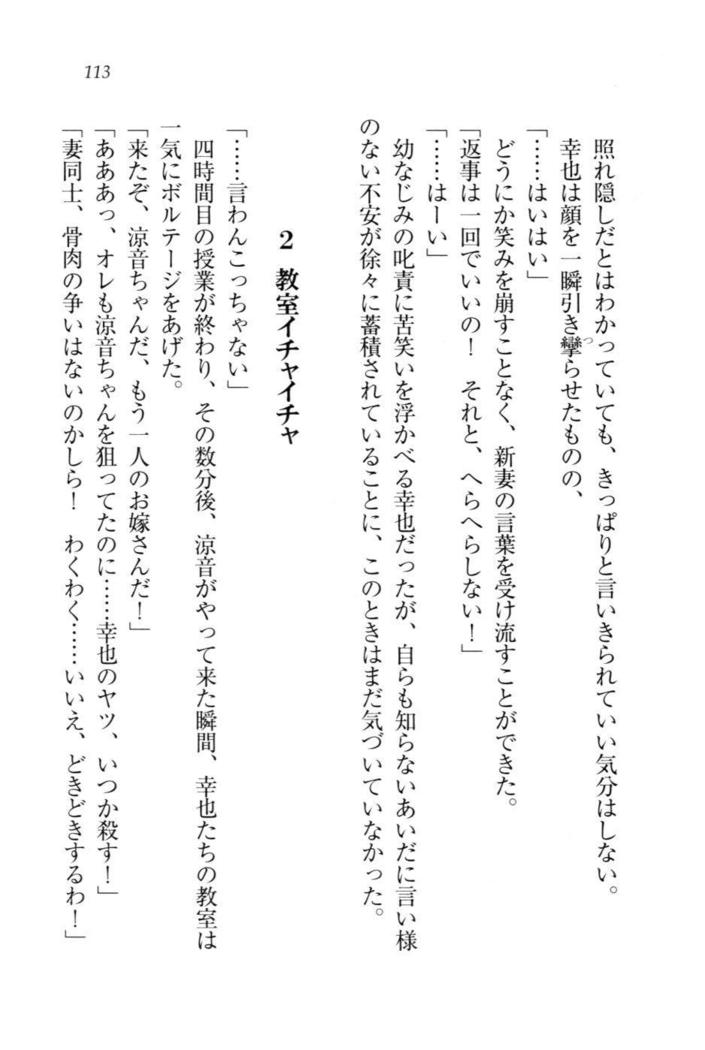 113
照れ隠しだとはわかっていても、きっぱりと言いきられていい気分はしない。
幸也は顔を一瞬引き攣らせたものの、
「……はいはい」
どうにか笑みを崩すことなく、新妻の言葉を受け流すことができた。
「返事は一回でいいの！　それと、へらへらしない！」
「……はーい」
幼なじみの叱責に苦笑いを浮かべる幸也だったが、自らも知らないあいだに言い様
のない不安が徐々に蓄積されていることに、このときはまだ気づいていなかった。
2　教室イチャイチャ
「……言わんこっちゃない」
四時間目の授業が終わり、その数分後、涼音がやって来た瞬間、幸也たちの教室は
一気にボルテージをあげた。
「来たぞ、涼音ちゃんだ、もう一人のお嫁さんだ！」
「あああっ、オレも涼音ちゃんを狙ってたのに……幸也のヤツ、いつか殺す！」
「妻同士、骨肉の争いはないのかしら！　わくわく……いいえ、どきどきするわ！」